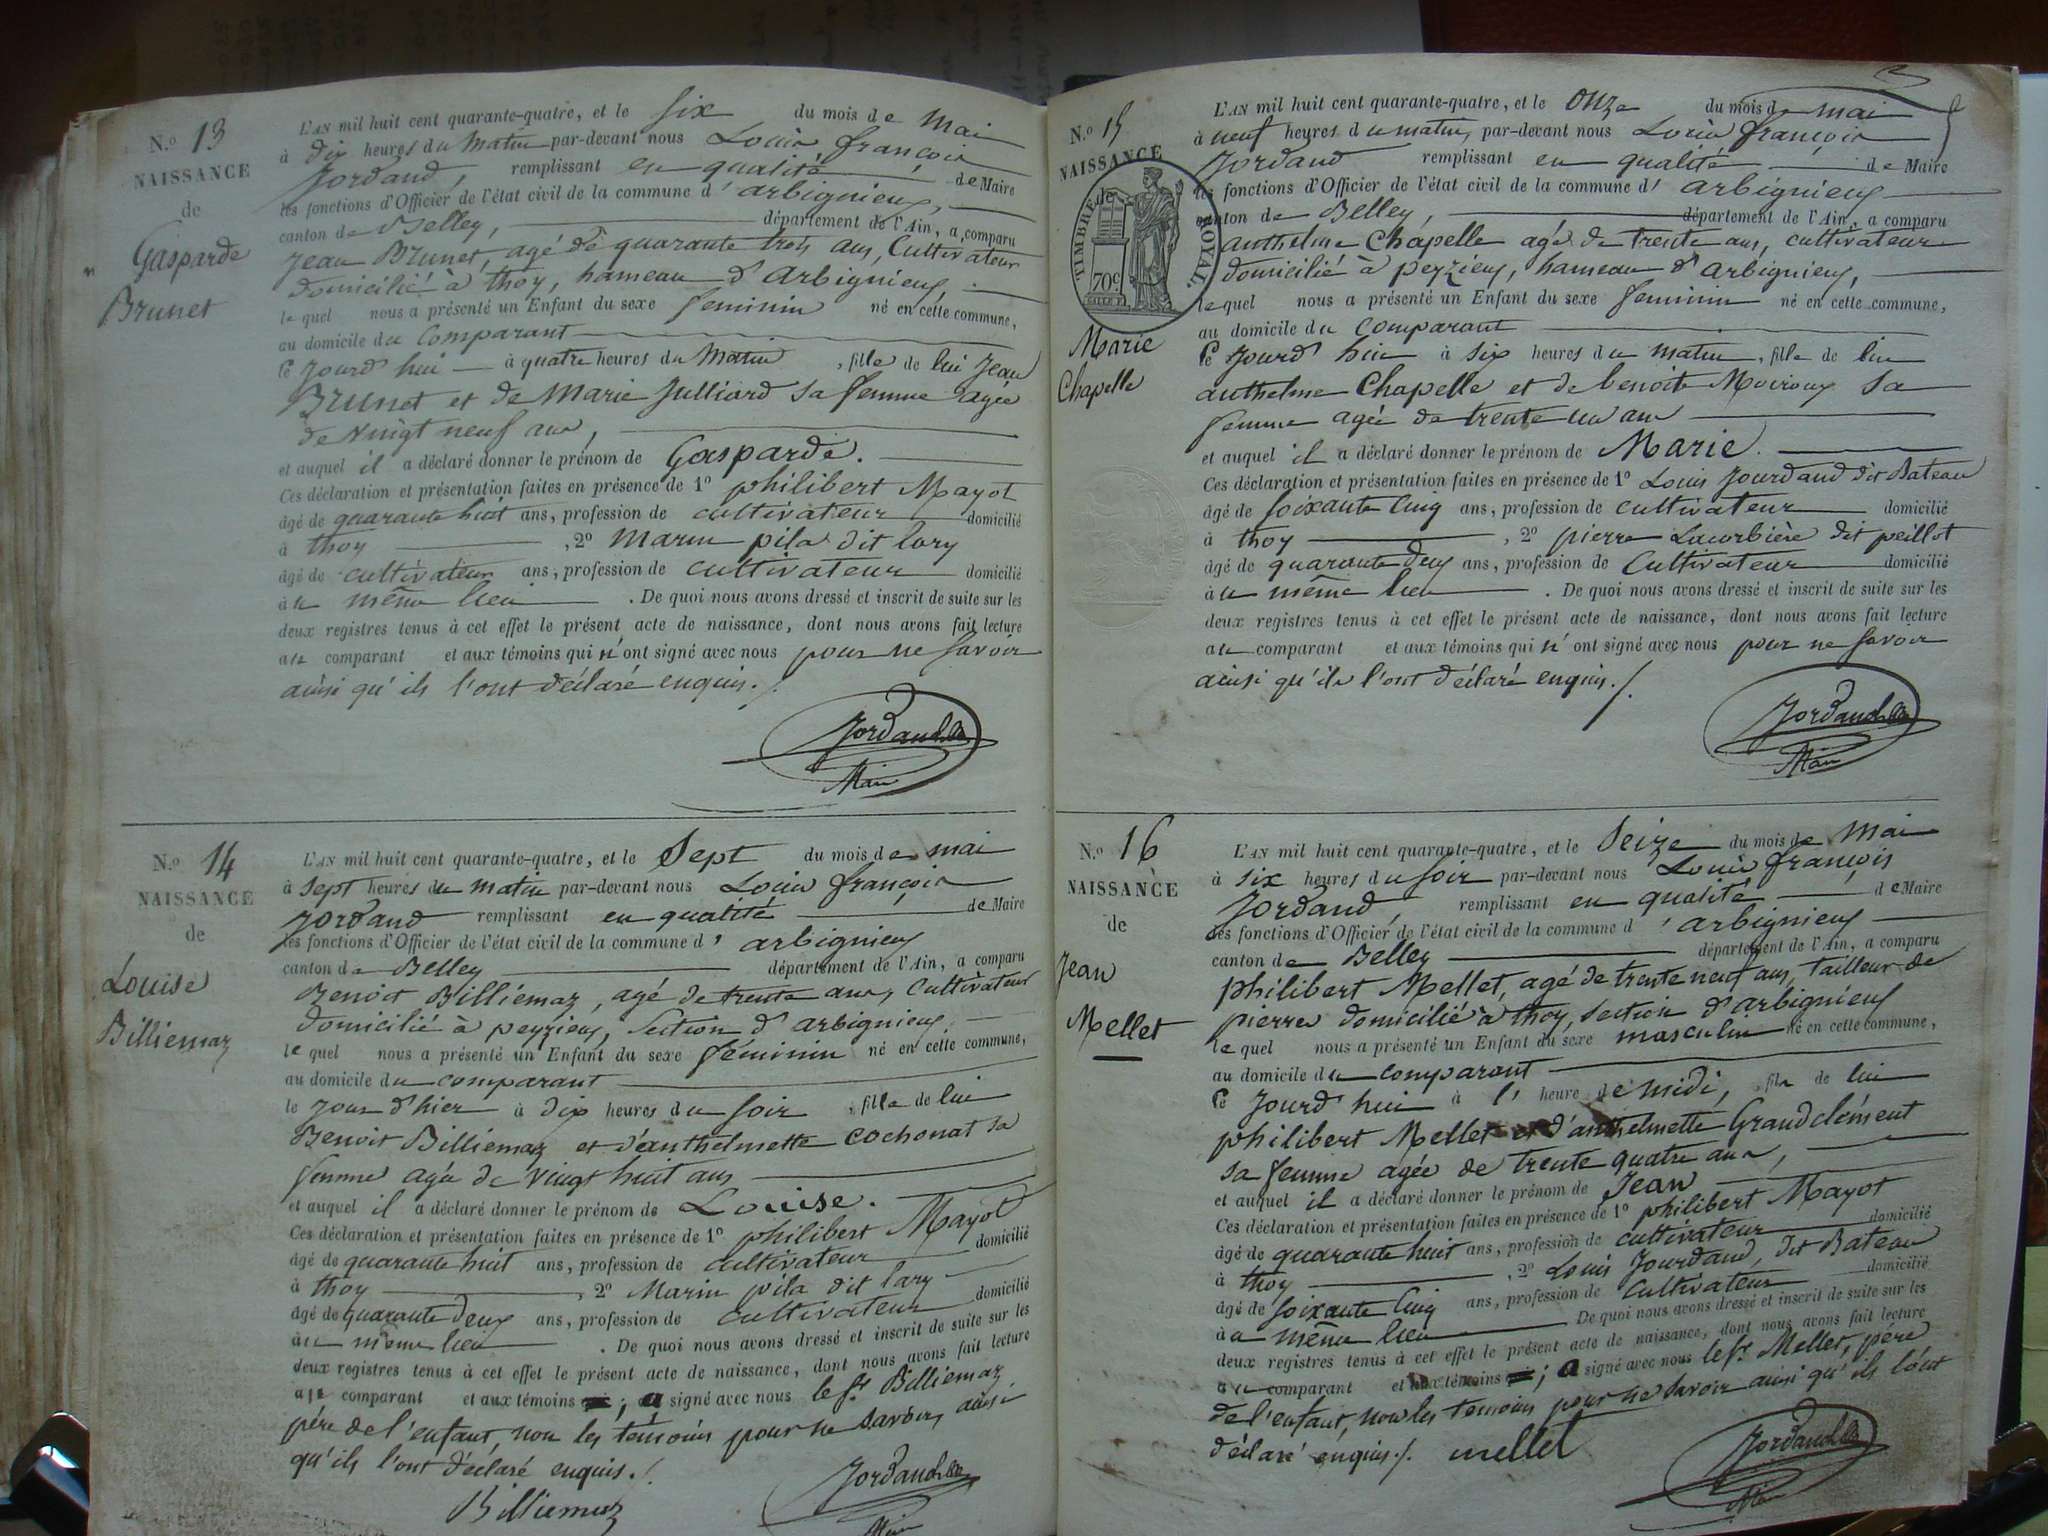 N.o 13
NAISSANCE
de
Gasparde
Brunet
L'AN mil huit cent quarante-quatre, et le six du mois de Mai
à dix heures du Matin par-devant nous Louis françois
Jordand, remplissant en qualité de Maire
les fonctions d'Officier de l'état civil de la commune d'arbignieux,
canton de Belley, département de l'Ain, a comparu
Jean Brunet, agé de quarante trois ans, Cultivateur
domicilié à thoy, hameau d'arbignieux,
lequel nous a présenté un Enfant du sexe feminin né en cette commune,
au domicile du Comparant
ce Jourd'hui à quatre heures du Matin, fille de lui Jean
Brunet et de Marie Julliard sa femme agée
de vingt neuf ans,
et auquel il a déclaré donner le prénom de Gasparde.
Ces déclaration et présentation faites en présence de 1o philibert Mayot
âgé de quarante huit ans, profession de cultivateur domicilié
à thoy, 2o Marin pila dit lary
âgé de cultivateur ans, profession de cultivateur domicilié
au même lieu. De quoi nous avons dressé et inscrit de suite sur les
deux registres tenus à cet effet le présent acte de naissance, dont nous avons fait lecture
au comparant et aux témoins qui n'ont signé avec nous pour ne savoir
ainsi qu'ils l'ont déclaré enquis./.
Jordand
Maire
N.o 14
NAISSANCE
de
Louise
Billiemaz
L'AN mil huit cent quarante-quatre, et le Sept du mois de mai
à sept heures du matin par-devant nous Louis françois
Jordand remplissant en qualité de Maire
les fonctions d'Officier de l'état civil de la commune d'arbignieux
canton de Belley département de l'Ain, a comparu
Benoit Billiemaz, agé de trente ans, Cultivateur
domicilié à peyzieux, section d'arbignieux,
lequel nous a présenté un Enfant du sexe féminin né en cette commune,
au domicile du comparant
le jour d'hier à dix heures du soir, fille de lui
Benoit Billiemaz et d'anthelmette Cochonat sa
femme agée de vingt huit ans
et auquel il a déclaré donner le prénom de Louise.
Ces déclaration et présentation faites en présence de 1o philibert Mayot
âgé de quarante huit ans, profession de cultivateur domicilié
à thoy, 2o Marin pila dit lary
âgé de quarante deux ans, profession de cultivateur domicilié
au même lieu. De quoi nous avons dressé et inscrit de suite sur les
deux registres tenus à cet effet le présent acte de naissance, dont nous avons fait lecture
au comparant et aux témoins ; a signé avec nous le sr Billiemaz,
père de l'enfant, non les témoins pour ne savoir, ainsi
qu'ils l'ont déclaré enquis./.
Billiemaz
Jordand
Maire
N.o 15
NAISSANCE
de
TIMBRE ROYAL.
70c.
Marie
Chapelle
L'AN mil huit cent quarante-quatre, et le onze du mois de mai
à neuf heures du matin, par-devant nous Louis françois
Jordand remplissant en qualité de Maire
les fonctions d'Officier de l'état civil de la commune d'arbignieux
canton de Belley, département de l'Ain, a comparu
anthelme Chapelle agé de trente ans, cultivateur
domicilié à peyzieux, hameau d'arbignieux,
lequel nous a présenté un Enfant du sexe feminin né en cette commune,
au domicile du comparant
ce Jourd'hui à six heures du matin, fille de lui
anthelme Chapelle et de benoite Moiroux sa
femme agée de trente un ans
et auquel il a déclaré donner le prénom de Marie.
Ces déclaration et présentation faites en présence de 1o Louis Jourdand dit Bateau
âgé de soixante cinq ans, profession de cultivateur domicilié
à thoy, 2o pierre Lacorbière dit peillot
âgé de quarante deux ans, profession de Cultivateur domicilié
au même lieu. De quoi nous avons dressé et inscrit de suite sur les
deux registres tenus à cet effet le présent acte de naissance, dont nous avons fait lecture
au comparant et aux témoins qui n'ont signé avec nous pour ne savoir
ainsi qu'ils l'ont déclaré enquis./.
Jordand
Maire
N.o 16
NAISSANCE
de
Jean
Mellet
L'AN mil huit cent quarante-quatre, et le Seize du mois de Mai
à six heures du soir par-devant nous Louis françois
Jordand, remplissant en qualité de Maire
les fonctions d'Officier de l'état civil de la commune d'arbignieux
canton de Belley département de l'Ain, a comparu
philibert Mellet, agé de trente neuf ans, tailleur de
pierres domicilié à thoy, section d'arbignieux
lequel nous a présenté un Enfant du sexe masculin né en cette commune,
au domicile du comparant
ce Jourd'hui à l'heure de midi, fils de lui
philibert Mellet et d'anthelmette Grandclément
sa femme agée de trente quatre ans,
et auquel il a déclaré donner le prénom de Jean
Ces déclaration et présentation faites en présence de 1o philibert Mayot
âgé de quarante huit ans, profession de cultivateur domicilié
à thoy, 2o Louis Jourdand, dit Bateau
âgé de soixante cinq ans, profession de Cultivateur domicilié
au même lieu De quoi nous avons dressé et inscrit de suite sur les
deux registres tenus à cet effet le présent acte de naissance, dont nous avons fait lecture
au comparant et aux témoins ; a signé avec nous le sr Mellet, père
de l'enfant, non les témoins pour ne savoir ainsi qu'ils l'ont
déclaré enquis./. mellet
Jordand
Maire